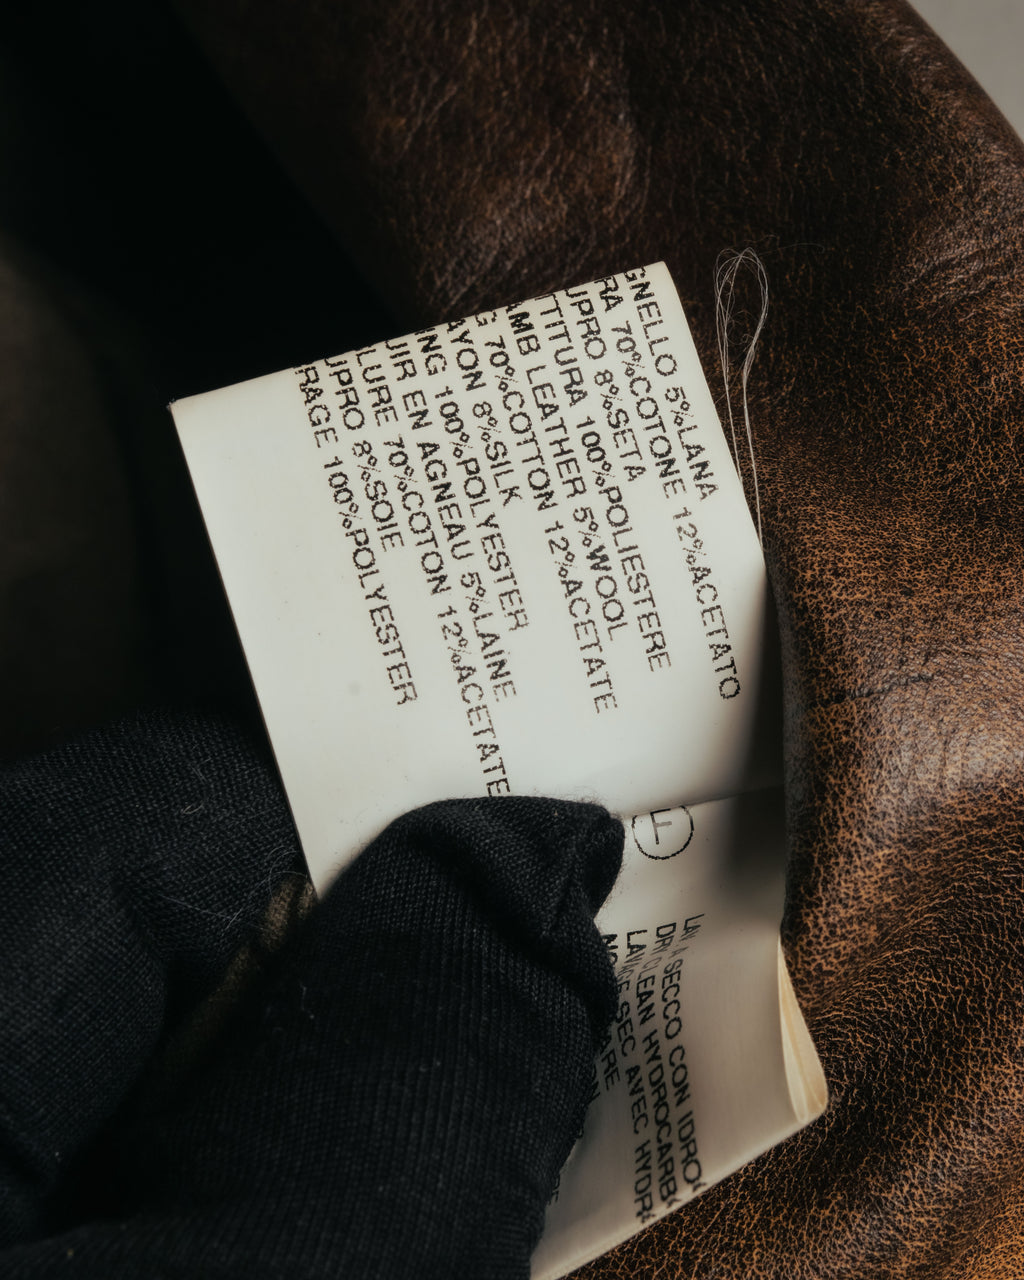 GNELLO 5%LANA
RA 70%COTONE 12%ACETATO
UPRO 8%SETA
TTITURA 100%POLIESTERE
AMB LEATHER 5%WOOL
G 70%COTTON 12%ACETATE
AYON 8%SILK
ING 100%POLYESTER
UIR EN AGNEAU 5%LAINE
LURE 70%COTON 12%ACETATE
UPRO 8%SOIE
RAGE 100%POLYESTER
F
LAV A SECCO CON IDRO
DRY CLEAN HYDROCARB
LAVAGE SEC AVEC HYDR